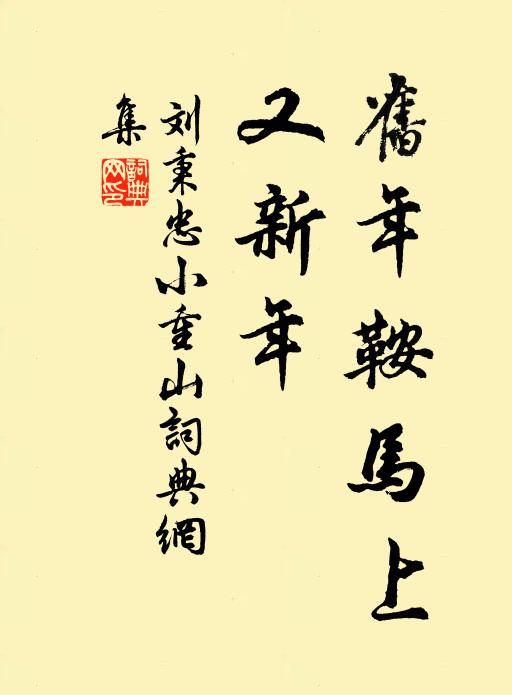 舊年鞍馬上
又新年
刘秉忠小重山詞典網
集
詞典
网印